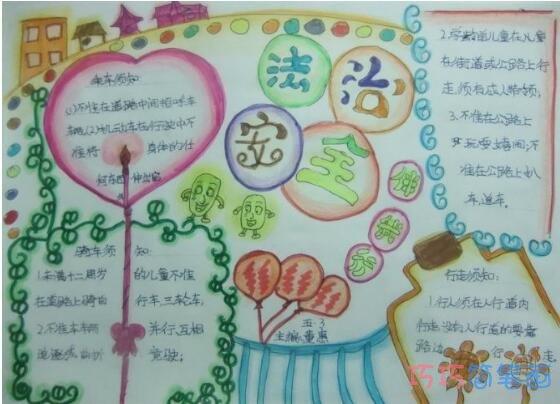 乘车须知:
(1)不准在道路中间招呼车
车辆(2)机动车在行驶中不
准将 身体的任
何东西 伸出窗
外
法治
安全
伴我行
2.学龄前儿童在儿童
在街道或公路上行
走,须有成人带领;
3.不准在公路上
玩耍嬉闹;不
准在公路上扒
车、追车。
骑车须知:
1.未满十二周岁 的儿童不准
在道路上骑自 行车、三轮车,
2.不准车车两 并行、互相
追逐或曲折 竞驶;
五·3
主编:董惠
行走须知:
1.行人须在人行道内
行走,没有人行道的要靠
路边 行走
巧巧简笔画